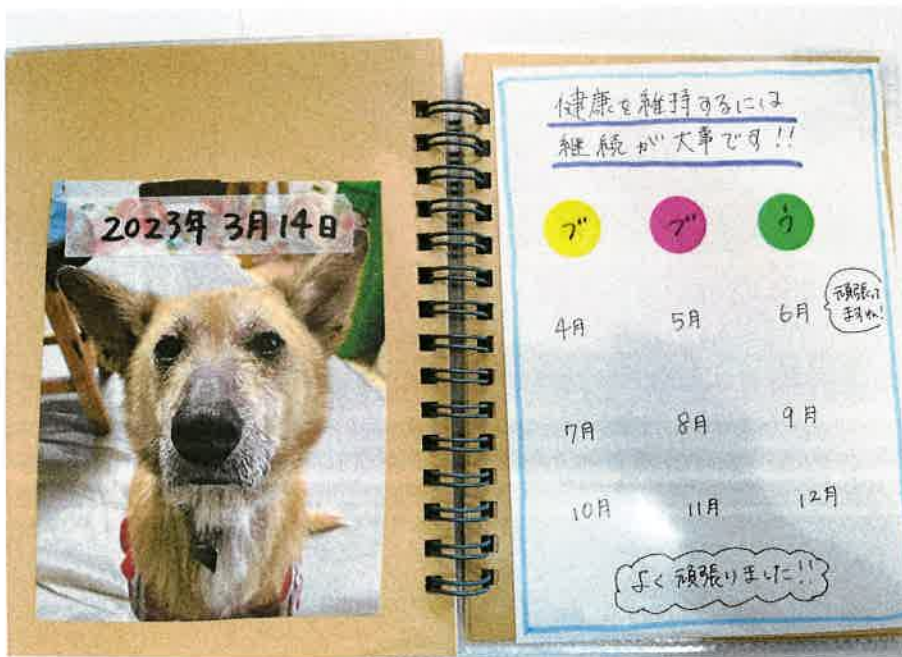 2023年 3月14日
健康を維持するには
継続が大事です!!
ブ ブ う
4月 5月 6月
頑張って
ますね!
7月 8月 9月
10月 11月 12月
よく頑張りました!!